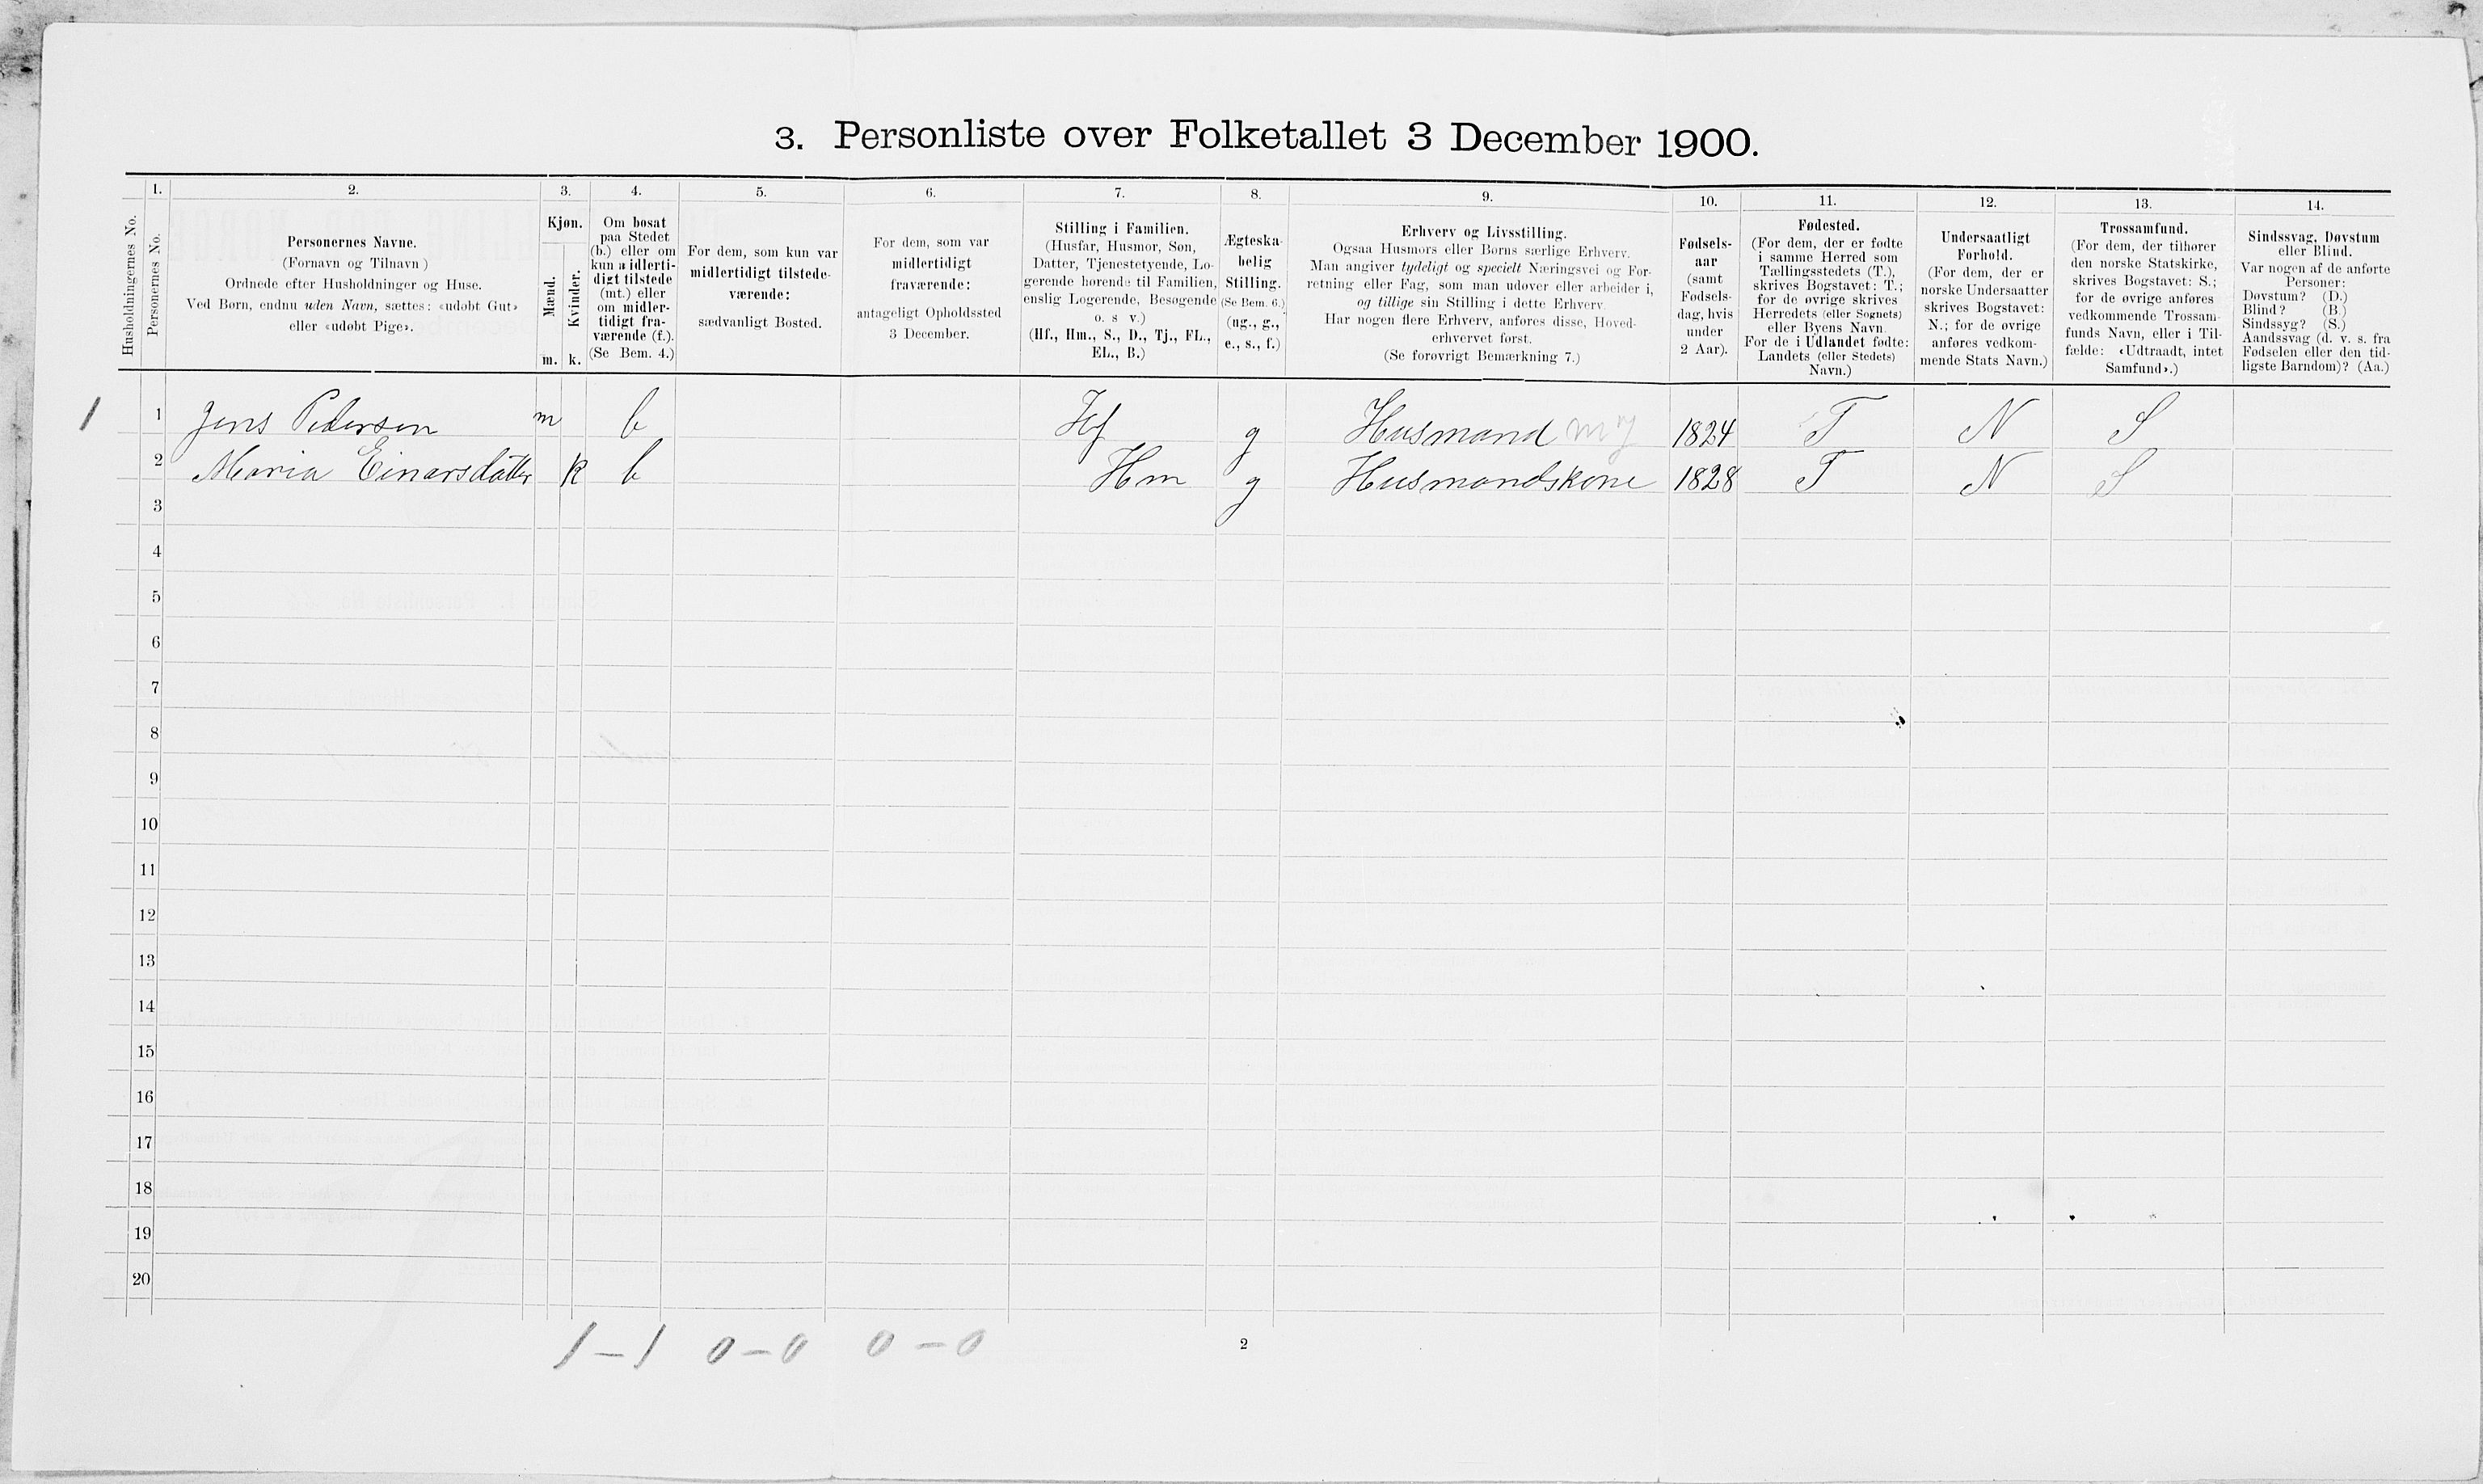 3. Personliste over Folketallet 3 December 1900.
1. 2. 3. 4. 5. 6. 7. 8. 9. 10. 11. 12. 13. 14.
Husholdningernes No.
Personernes No.
Personernes Navne.
(Fornavn og Tilnavn)
Ordnede efter Husholdninger og Huse.
Ved Børn, endnu uden Navn, sættes: «udøbt Gut»
eller «udøbt Pige».
Kjøn.
Mænd.
Kvinder.
m. k.
Om bosat
paa Stedet
(b.) eller om
kun midlerti-
digt tilstede
(mt.) eller
om midler-
tidigt fra-
værende (f.).
(Se Bem. 4.)
For dem, som kun var
midlertidigt tilstede-
værende:
sædvanligt Bosted.
For dem, som var
midlertidigt
fraværende:
antageligt Opholdssted
3 December.
Stilling i Familien.
(Husfar, Husmor, Søn,
Datter, Tjenestetyende, Lo-
gerende hørende til Familien,
enslig Logerende, Besøgende
o. s v.)
(Hf., Hm., S., D., Tj., FL.,
EL., B.)
Ægteska-
belig
Stilling.
(Se Bem. 6.)
(ug., g.,
e., s., f.)
Erhverv og Livsstilling.
Ogsaa Husmors eller Børns særlige Erhverv.
Man angiver tydeligt og specielt Næringsvei og For-
retning eller Fag, som man udøver eller arbeider i,
og tillige sin Stilling i dette Erhverv
Har nogen flere Erhverv, anføres disse, Hoved-
erhvervet først.
(Se forøvrigt Bemærkning 7.)
Fødsels-
aar
(samt
Fødsels-
dag, hvis
under
2 Aar).
Fødested.
(For dem, der er fødte
i samme Herred som
Tællingsstedets (T.),
skrives Bogstavet: T.;
for de øvrige skrives
Herredets (eller Sognets)
eller Byens Navn.
For de i Udlandet fødte:
Landets (eller Stedets)
Navn.)
Undersaatligt
Forhold.
(For dem, der er
norske Undersaatter
skrives Bogstavet:
N.; for de øvrige
anføres vedkom-
mende Stats Navn.)
Trossamfund.
(For dem, der tilhører
den norske Statskirke,
skrives Bogstavet: S.;
for de øvrige anføres
vedkommende Trossam-
funds Navn, eller i Til-
fælde: «Udtraadt, intet
Samfund».)
Sindssvag, Døvstum
eller Blind.
Var nogen af de anførte
Personer:
Døvstum? (D.)
Blind? (B.)
Sindssyg? (S.)
Aandssvag (d. v. s. fra
Fødselen eller den tid-
ligste Barndom)? (Aa.)
1 1 Jens Pedersen m b Hf g Husmand 1824 T N S
2 Maria Einarsdatter k b Hm g Husmandskone 1828 T N S
3
4
5
6
7
8
9
10
11
12
13
14
15
16
17
18
19
20
1 – 1 0 – 0 0 – 0
2